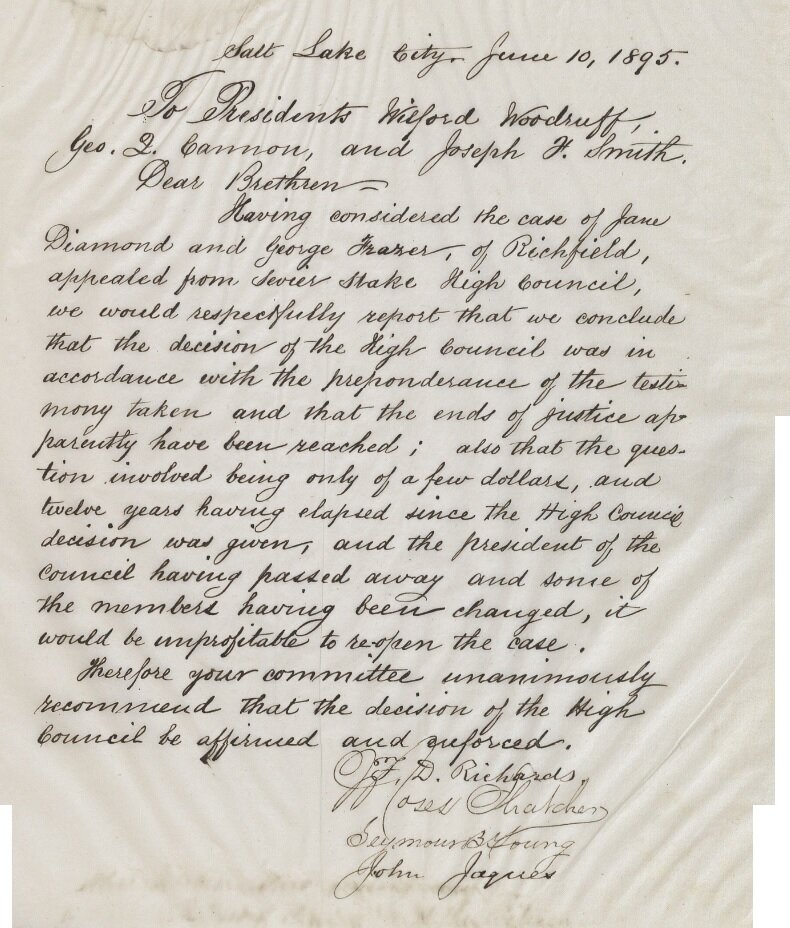 Salt Lake City, June 10, 1895.
To Presidents Wilford Woodruff,
Geo. Q. Cannon, and Joseph F. Smith.
Dear Brethren—
Having considered the case of Jane
Diamond and George Frazer, of Richfield,
appealed from Sevier Stake High Council,
we would respectfully report that we conclude
that the decision of the High Council was in
accordance with the preponderance of the testi-
mony taken and that the ends of justice ap-
parently have been reached; also that the ques-
tion involved being only of a few dollars, and
twelve years having elapsed since the High Council
decision was given, and the president of the
council having passed away and some of
the members having been changed, it
would be unprofitable to re-open the case.
Therefore your committee unanimously
recommend that the decision of the High
Council be affirmed and enforced.
F. D. Richards
Moses Thatcher
Seymour B Young
John Jaques